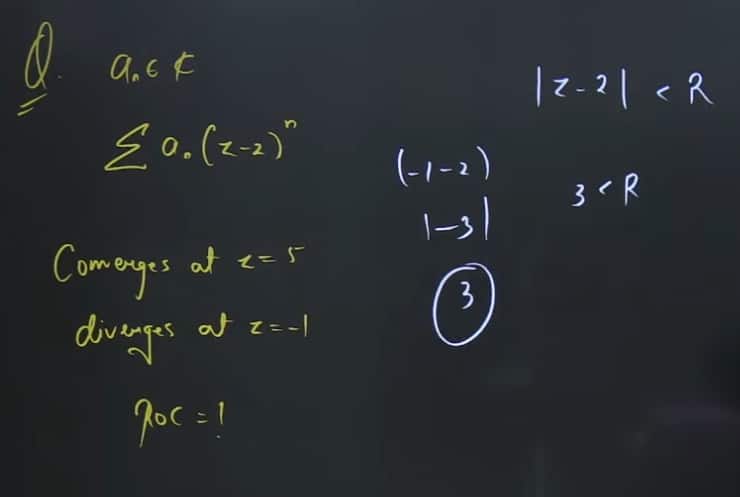 Q. aₙ ∈ ₵
∑ aₙ (z-2)ⁿ
Converges at z = 5
diverges at z = -1
ROC = !
(-1-2)
|-3|
3
|z-2| < R
3 < R